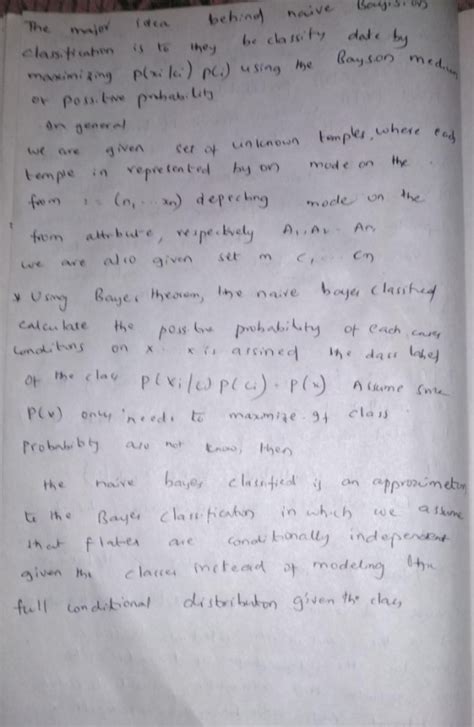 The major idea behind naive Bayision
classification is to they be classify date by
maximizing p(xi/ci) p(ci) using the Bayson medium
or possitive probability
In general
we are given set of unknown temples, where each
temple in represented by on mode on the
from : = (n, ... xn) depecting mode on the
from attribute, respectively A1, A2 .. An
we are also given set m c, ... Cn
* Using Bayes theorem, the naive bayes classified
calculate the possitive probability of each cases
conditions on x. x is assined the class label
of the clas p(xi/c) p(ci) . p(x) Assume since
p(x) only needs to maximize. If class
probability are not know, then
the naive bayes classified is an approximeton
to the Bayes classification in which we assume
that flates are conditionally independent
given the classes instead of modeling the
full conditional distribution given the clas,